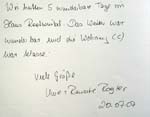 Wir hatten 5 wunderbare Tage im
Haus. Das Wetter war
wunderbar und die Wohnung (C)
war klasse.
Viele Grüße
Uwe + Renate
20.07.07